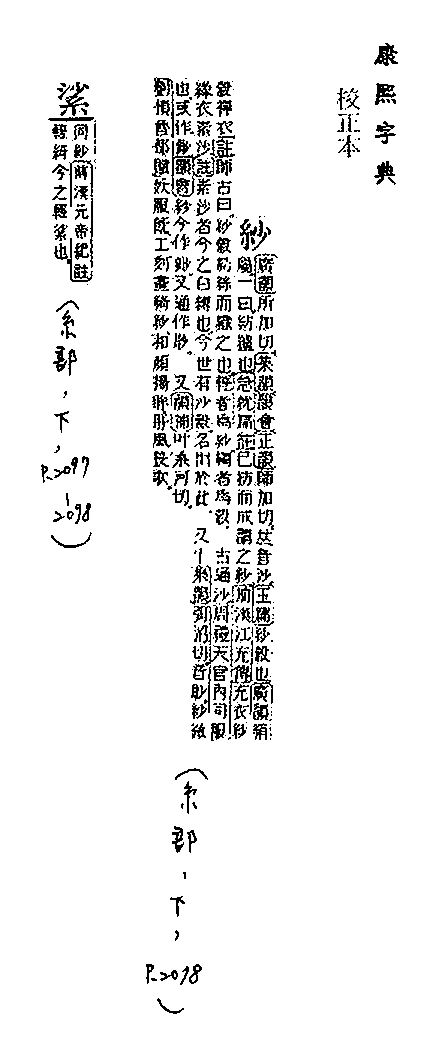 康熙字典
校正本
紗
廣韻所加切集韻韻會正韻師加切𠀤音沙玉篇紗縠也廣韻絹
屬一曰紡纑也急就篇註已紡而成謂之紗前漢江充傳充衣紗
縠襌衣註師古曰紗縠紡絲而織之也輕者為紗縐者為縠 古通沙周禮天官內司服
緣衣素沙註素沙者今之白縛也今世有沙縠名出於此 又
也或作𥿋 紗今作𥿋又通作𥿋 又韻補叶桑何切
妖服飭工刻畫綺紗和顏揚眸眄風長歌
䋾
同紗前漢元帝紀註
輕綃今之輕䋾也
(糸部,下,
P.2097
-
2098)
(糸部,下,
P.2098)